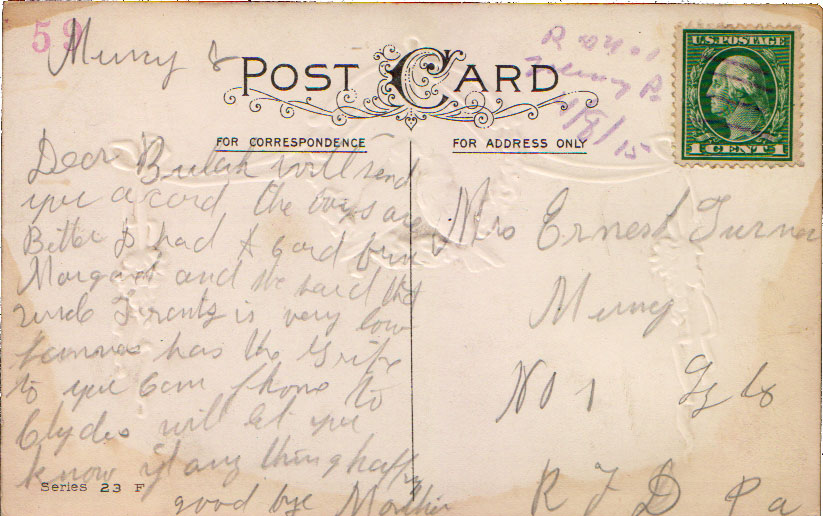 59
Muncy
POST CARD
R
Muncy Pa
1/8/15
U.S. POSTAGE
1 CENT 1
FOR CORRESPONDENCE
FOR ADDRESS ONLY
Dear Beulah will send
you a card the boys are
Better I had A card from
Margaret and she said that
Frantz is very low
has the Gripe
to you can Phone to
Clydes will let you
know if any thing happy
good bye Mother
Mrs Ernest Turner
Muncy
NO 1
R F D Pa
Series 23 F